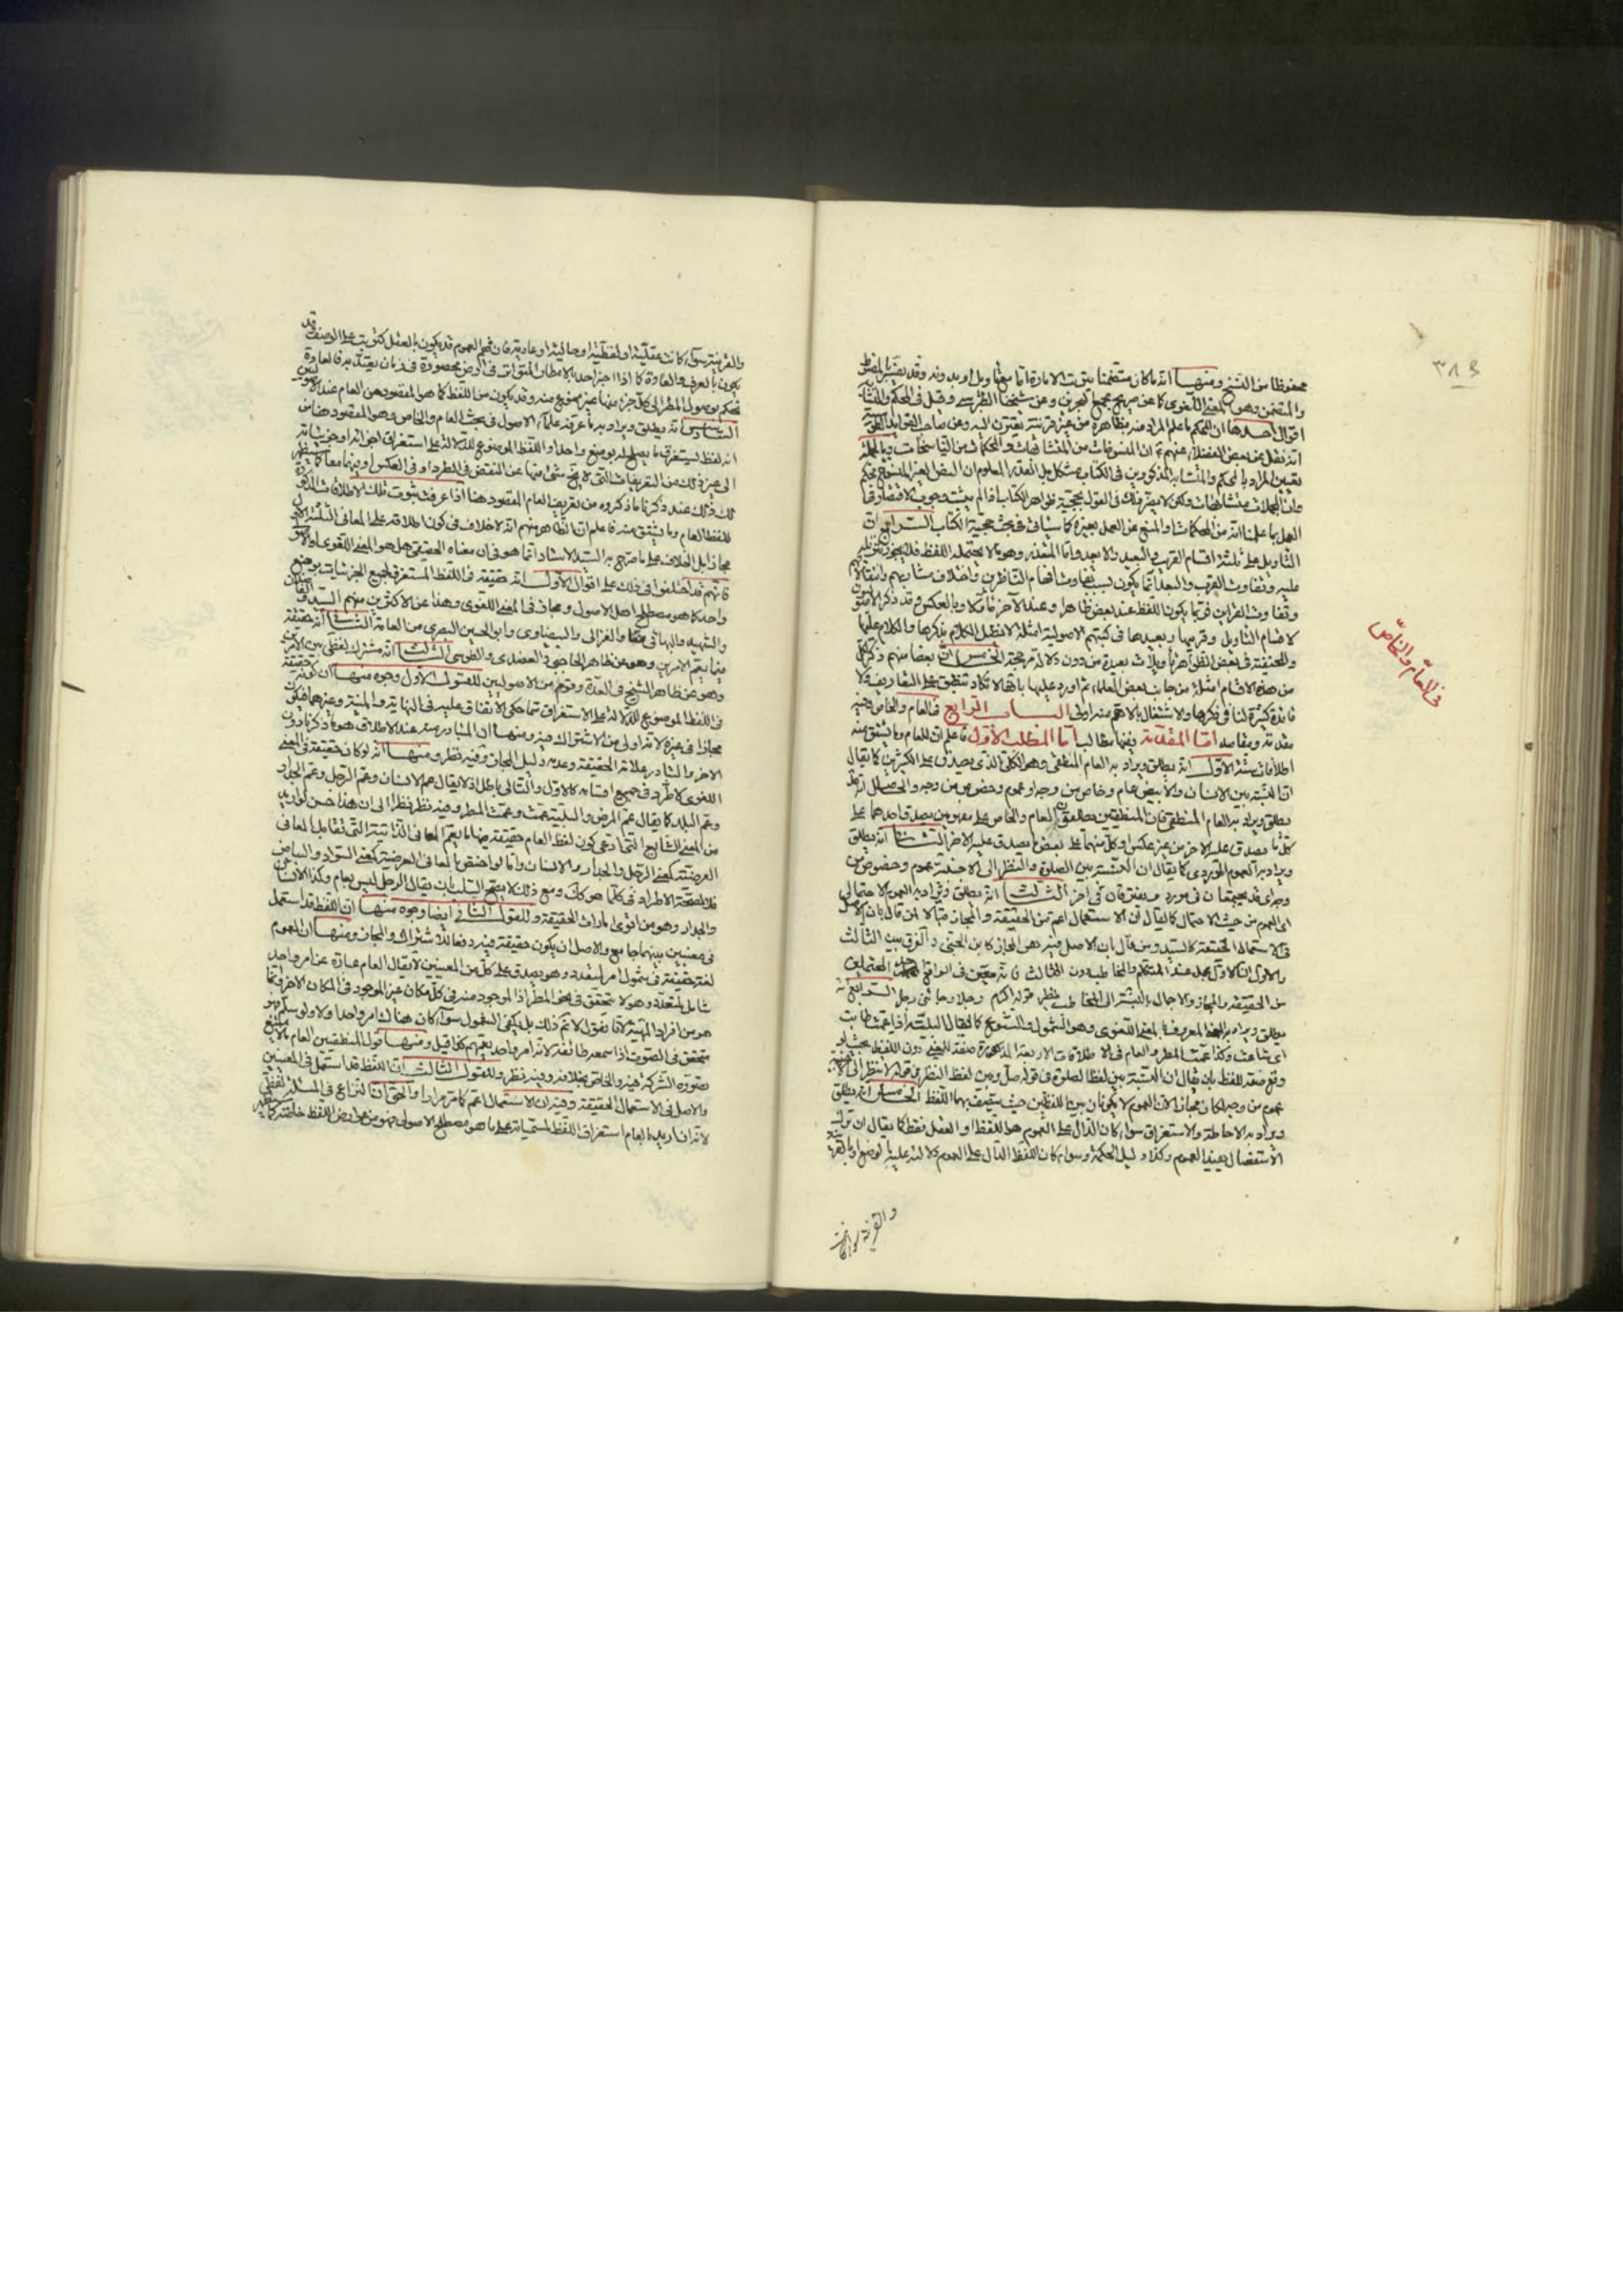 ٣٨٤
في العام والخاص
محفوظا من النسخ ومنها انه ما كان متضمنا
والمتضمن وهو المعنى اللغوي كما عن صريح مجمع البحرين وعن شيخنا الطبرسي وقيل في المحكم والمتشابه
اقوال احدها ان المحكم ما علم المراد منه بظاهره من غير قرينة تقترن اليه
انه نقل عن بعض الفضلاء عنهم ان المنسوخات من المتشابهات والمحكمات من الناسخات وبالجملة
تعيين المراد بالمحكم والمتشابه المذكورين في الكتاب مشكل بل القدر المعلوم ان البعض الغير المنسوخ محكم
وان المجملات متشابهات ولكن لا يضر ذلك في القول بحجية ظواهر الكتاب اذ لم يثبت وجوب الاقتصار في
العمل بما علمنا انه من المحكمات والمنع عن العمل بغيره كما سيأتي في بحث حجية الكتاب الرابع ان
التأويل على ثلثة اقسام القريب والبعيد والابعد واما المتعذر وهو ما لا يحتمله اللفظ فلا يجوز تنزيله
عليه وتفاوت القرب والبعد انما يكون بسبب تفاوت افهام الناظرين واختلاف مشاربهم وانتقالاتهم
وتفاوت القراين فربما يكون اللفظ عند بعض ظاهرا وعند الآخر مأولا وبالعكس وقد ذكر الاصوليون
لاقسام التأويل وقريبها وبعيدها في كتبهم الاصولية امثلة لا نطيل الكلام بذكرها والكلام عليها
وللحنفية في بعض الظواهر تأويلات بعيدة من دون دلالة مرجحة الخامس ان بعضا منهم ذكر لكل
من هذه الاقسام امثلة من جانب بعض العلماء ثم اورد عليها بانها لا تكاد تنطبق على التعاريف ولا
فائدة كثيرة لنا في ذكرها والاشتغال بالاهم منه اولى الباب الرابع في العام والخاص وفيه
مقدمة ومقاصد اما المقدمة ففيها مطالب اما المطلب الاول فاعلم ان للعام وما يشتق منه
اطلاقات ستة الاول انه يطلق ويراد به العام المنطقي وهو الكلي الذي يصدق على الكثيرين كما يقال
ان النسبة بين الانسان والابيض عام وخاص من وجه او عموم وخصوص من وجه والحاصل انه قد
يطلق ويراد به العام المنطقي فان المنطقيين يطلقون العام والخاص على مفهومين يصدق احدهما على
كل ما يصدق عليه الاخر من غير عكس او كل منهما على بعض ما يصدق عليه الاخر الثاني انه يطلق
ويراد به العموم الموردي كما يقال ان النسبة بين الصلوة والنظر الى الاجنبية عموم وخصوص من
وجه اي قد يجتمعان في مورد ويفترقان في اخر الثالث انه يطلق ويراد به العموم الاحتمالي
اي العموم من حيث الاحتمال كما يقال ان الاستعمال اعم من الحقيقة والمجاز قبالا لمن قال بان الاصل
في الاستعمال الحقيقة كالسيد ومن قال بان الاصل فيه هو المجاز كابن الجني والفرق بين الثالث
والاول ان الاول مجمل عند المتكلم والمخاطب دون الثالث فانه معين في الواقع المحتملين
من الحقيقة والمجاز والاجمال بالنسبة الى المخاطب نظير قوله اكرم رجلا وجائني رجل الرابع انه
يطلق ويراد به المعروف بالمعنى اللغوي وهو الشمول والشيوع كما يقال البلية اذا عمت طابت
اي شاعت وكذا عمت المطر والعام في الاطلاقات الاربعة المذكورة صفة للمعنى دون اللفظ بحيث لو
وقع صفة للفظ بان يقال ان النسبة بين لفظ الصلوة في قوله صل وبين لفظ النظر في قوله لا تنظر الى الاجنبية
عموم من وجه لكان مجازا لان العموم لا يكونان بين اللفظين حيث يتصف بهما اللفظ الخامس انه يطلق
ويراد به الاحاطة والاستغراق سواء كان الدال على العموم هو اللفظ او العقل فقط كما يقال ان ترك
الاستفصال يفيد العموم وكذا دليل الحكمة وسواء كان اللفظ الدال على العموم دلالته عليه بالوضع او بالقرينة
والقرينة سواء كانت
والقرينة سواء كانت عقلية او لفظية او حالية او عادية فان فهم العموم قد يكون بالعقل كترتب على الوصف وقد
يكون بالعرف والعادة كما اذا اخبر احد بالامطار المتواترة في ارض محصورة في زمان يعتد به فالعادة
تحكم بوصول المطر الى كل جزء منها غير ممنوع منه وقد يكون من اللفظ كما هو المقصود من العام عند الاصوليين
السادس انه يطلق ويراد به ما عرفه علماء الاصول في بحث العام والخاص وهو المقصود هنا من
انه لفظ يستغرق ما يصلح له بوضع واحد او اللفظ الموضوع للدلالة على استغراق اجزائه او جزئياته
الى غير ذلك من التعريفات التي لا يخ شئ منها عن النقض في الطرد او في العكس او فيهما معا كما سيظهر
لك ذلك عند ذكرنا ما ذكروه من تعريف العام المقصود هنا اذا عرفت ثبوت تلك الاطلاقات المذكورة
للفظ العام وما يشتق منه فاعلم ان الظاهر منهم انه لا خلاف في كون اطلاقه على المعاني الثلثة الاول
مجازا بل الخلاف على ما صرح به السيد الاستاد انما هو في ان معناه الحقيقي هل هو المعنى اللغوي او الاصولي
فانهم قد اختلفوا في ذلك على اقوال الاول انه حقيقة في اللفظ المستغرق لجميع الجزئيات بوضع
واحد كما هو مصطلح اهل الاصول ومجاز في المعنى اللغوي وهذا عن الاكثرين منهم السيد والفاضلان
والشهيد والبهائي والغزالي والبيضاوي وابو الحسين البصري من العامة الثاني انه حقيقة
فيما يعم الامرين وهو عن ظاهر الحاجبي والعضدي والطوسي الثالث انه مشترك لفظي بين الامرين
وهو عن ظاهر الشيخ في العدة وقوم من الاصوليين للقول الاول وجوه منها ان كونه حقيقة
في اللفظ الموضوع للدلالة على الاستغراق مما حكي الاتفاق عليه في النهاية والمنية وغيرهما فيكون
مجازا في غيره لانه اولى من الاشتراك ومنها ان المتبادر منه عند الاطلاق هو ما ذكرنا دون
الاخر والتبادر علامة الحقيقة وعدمه دليل المجاز وفيه نظر ومنها انه لو كان حقيقة في المعنى
اللغوي لاطرد في جميع اقسامه كالاول والتالي باطل اذ لا يقال عم الانسان وعم الرجل وعم الجدار
وعم البلد كما يقال عم المرض والبلية عمت وعمت المطر وفيه نظر نظرا الى ان هذا حسن لو اريد
من المعنى الشايع الذي ادعي كون لفظ العام حقيقة فيه ما يعم المعاني الذاتية التي تقابل المعاني
العرضية كمعنى الرجل والجدار والانسان واما لو اختص بالمعاني العرضية كمعنى السواد والبياض
فلا لصحة الاطراد في كلما هو كك ومع ذلك لا يصح السلب بان يقال الرجل ليس بعام وكذا الانسان
والجدار وهو من اقوى امارات الحقيقة وللقول الثاني ايضا وجوه منها ان اللفظ قد استعمل
في معنيين بينهما جامع والاصل ان يكون حقيقة فيه دفعا للاشتراك والمجاز ومنها ان العموم
لغة حقيقة في شمول امر لمتعدد وهو يصدق على كل من المعنيين لا يقال العام عبارة عن امر واحد
شامل لمتعدد وهو لا يتحقق في نحو المطر اذ الموجود منه في كل مكان غير الموجود في المكان الاخر وانما
هو من افراد المهية لانا نقول لا نم ذلك بل يكفي الشمول سواء كان هناك امر واحد اولا ولو سلم فهو
متحقق في الصوت اذا سمعه طائفة لانه امر واحد يعمهم كذا قيل ومنها قول المنطقيين العام ما لا يمنع
تصوره الشركة فيه والخاص بخلافه وفيه نظر وللقول الثالث ان اللفظ قد استعمل في المعنيين
والاصل في الاستعمال الحقيقة وفيه ان الاستعمال اعم كما مر مرارا والحق ان النزاع في المسئلة لفظي
لانه ان اريد بالعام استغراق اللفظ لمسمياته على ما هو مصطلح الاصولي فهو من عوارض اللفظ خاصة